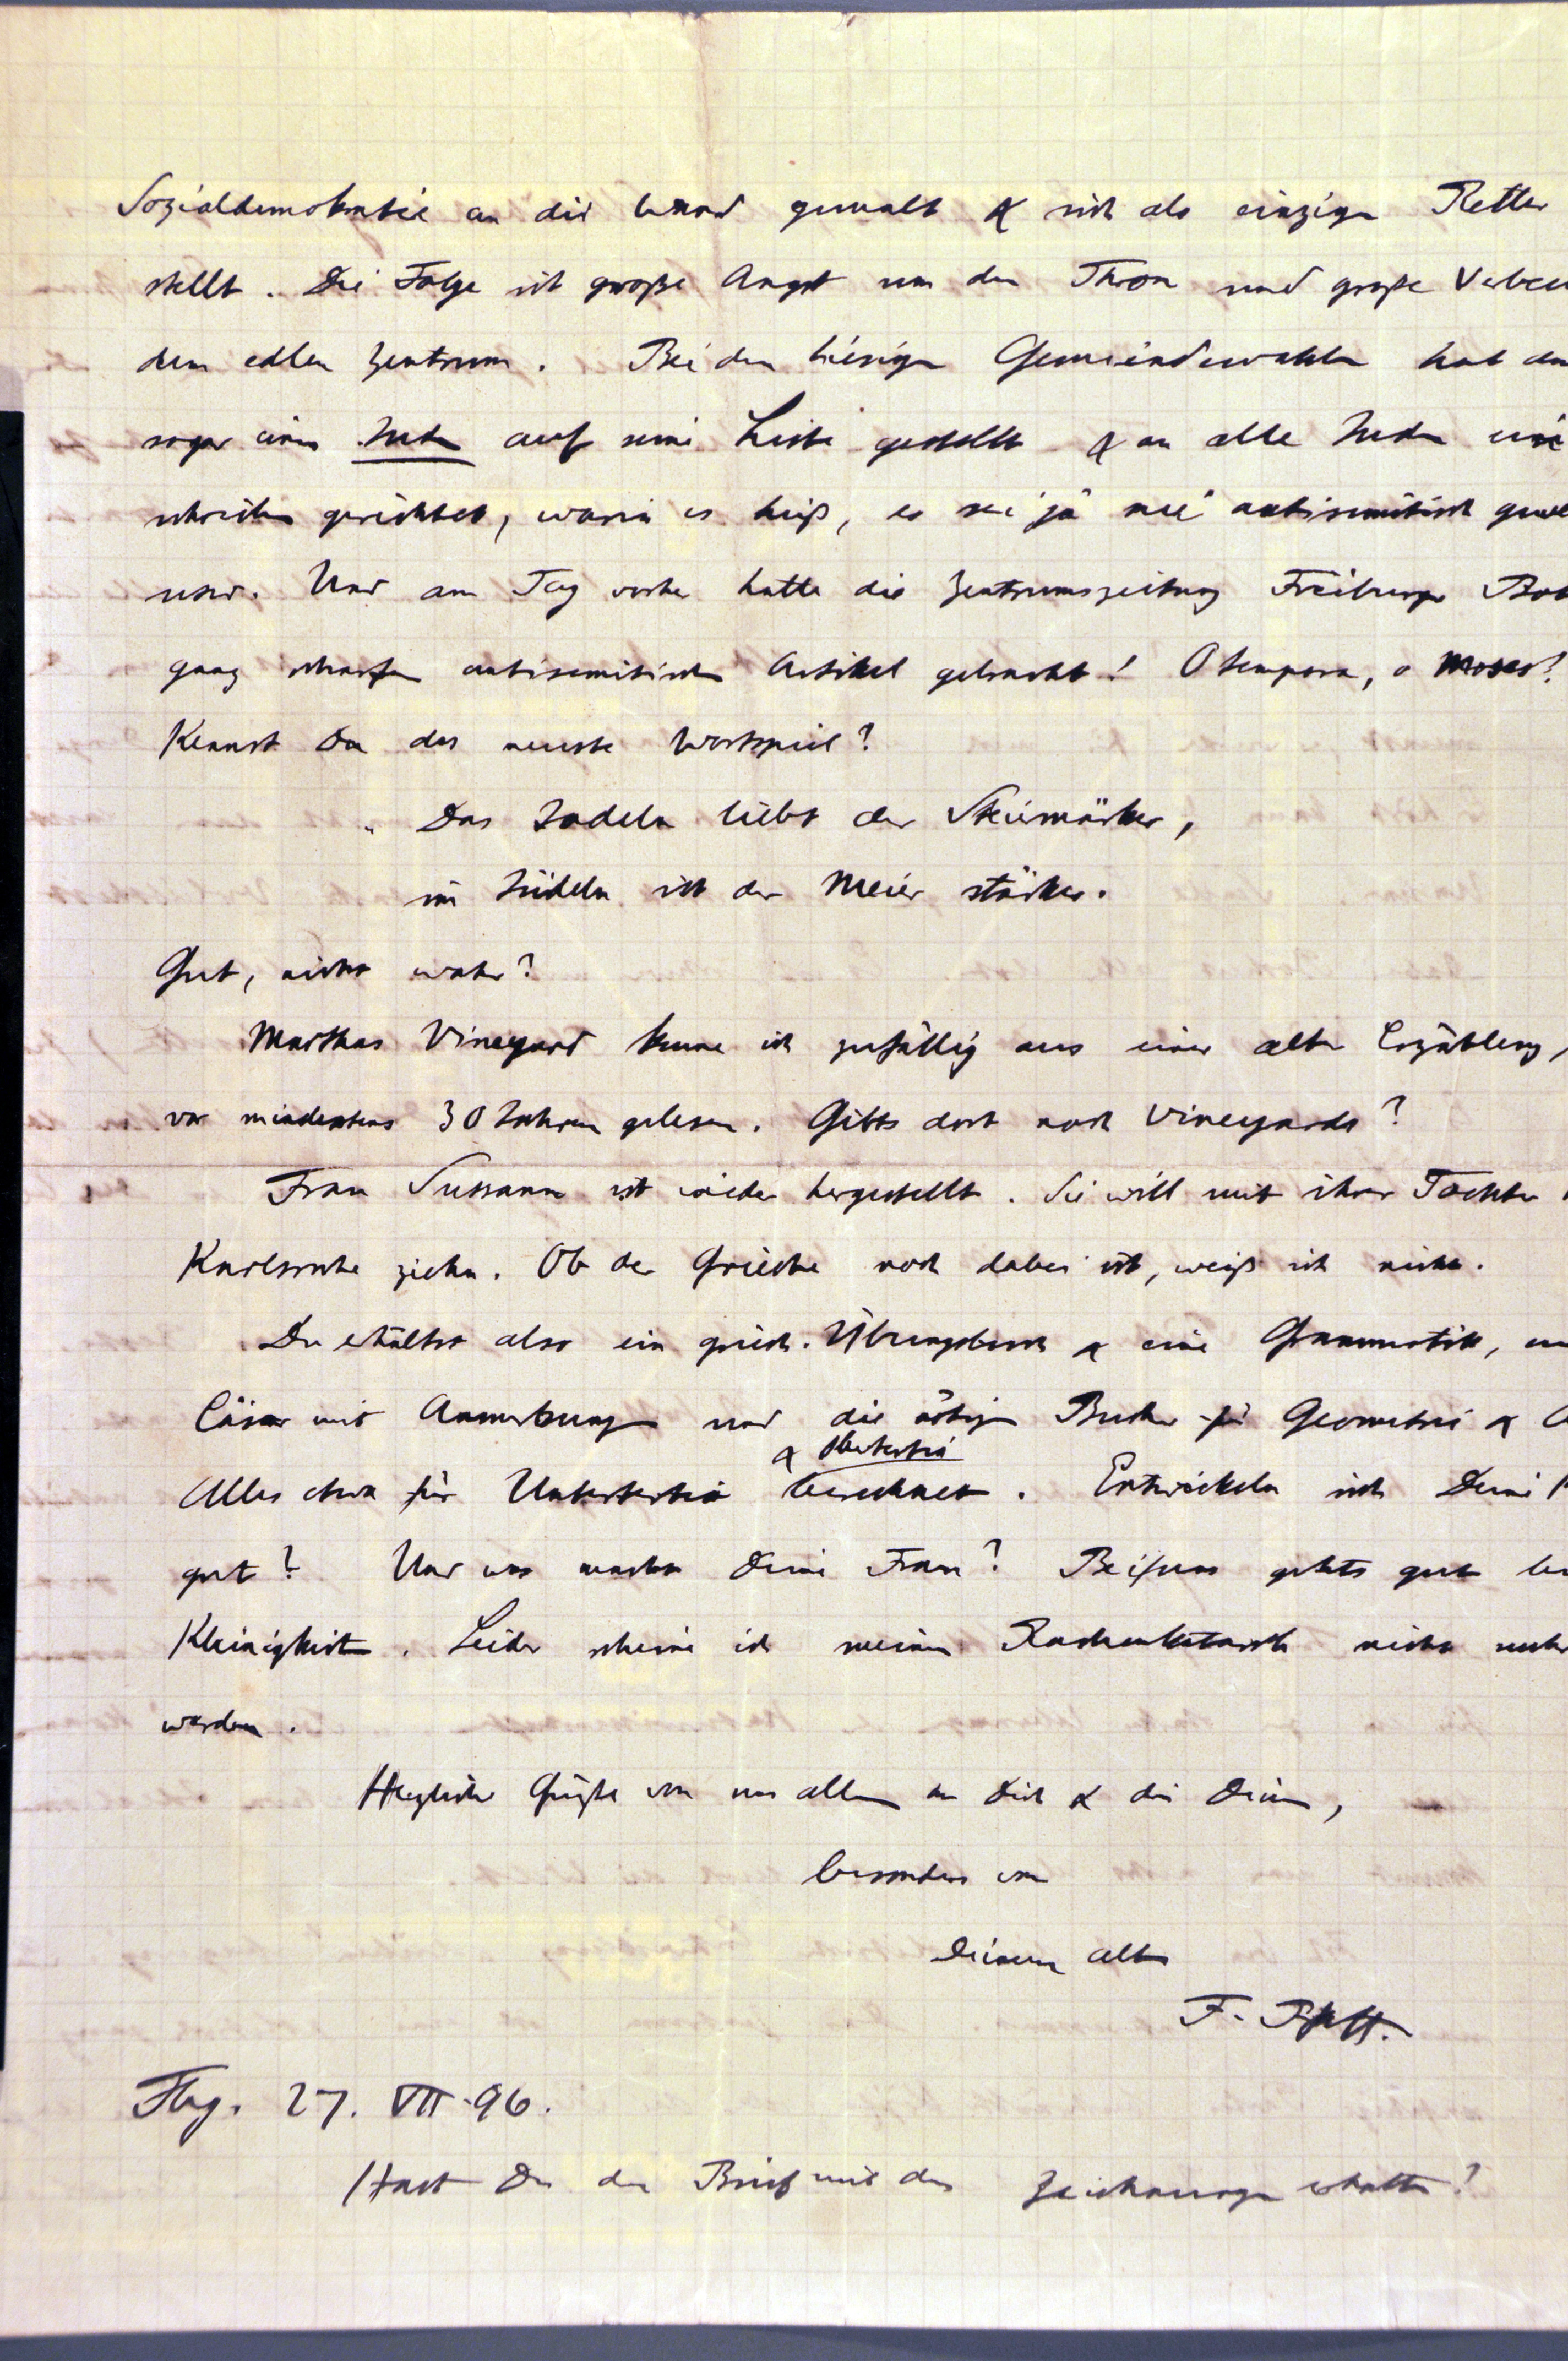 Sozialdemokratie an die Wand gemalt & sich als einzigen Retter
stellt. Die Folge ist große Angst um den Thron und große Verbeu
dem edlen Zentrum. Bei den hiesigen Gemeindewahlen hat
sogar einen Juden auf seine Liste gestellt & an alle Juden ein
schreiben gerichtet, worin es hieß, es sei ja nie antisemitisch gewe
usw. Und am Tag vorher hatte die Zentrumszeitung Freiburger Bot
ganz scharfen antisemitischen Artikel gebracht! O tempora, o Moses!
Kennst Du das neuste Wortspiel?
„Das Jodeln liebt der Steiermärker,
im Jüdeln ist der Meier stärker.
Gut, nicht wahr?
Marthas Vineyard kenne ich zufällig aus einer alten Erzählung,
vor mindestens 30 Jahren gelesen. Gibts dort noch Vineyards?
Frau Sussann ist wieder hergestellt. Sie will mit ihrer Tochter
Karlsruhe ziehn. Ob der Grieche noch dabei ist, weiß ich nicht.
Du erhältst also ein griech. Übungsbuch & eine Grammatik,
Cäsar mit Anmerkungen und die nötigen Bücher für Geometrie &
& Obertertia
Alles etwa für Untertertia berechnet. Entwickeln sich Deine
gut? Und was macht Deine Frau? Bei uns gehts gut
Kleinigkeiten. Leider scheine ich meinen Rachenkatarrh nicht mehr
werden.
Herzliche Grüße von uns allen an Dich & die Deinen,
besonders von
Deinem alten
F. Pfaff.
Fbg. 27. VII. 96.
Hast Du den Brief mit den Zeichnungen erhalten?